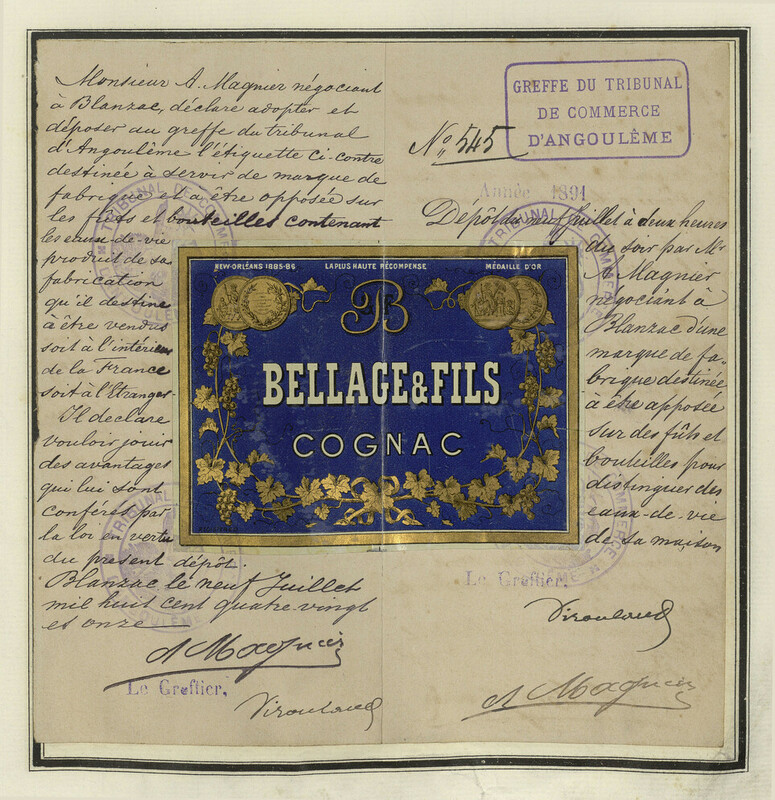 Monsieur A. Magnier négociant
à Blanzac, déclare adopter et
déposer au greffe du tribunal
d'Angoulême l'étiquette ci-contre
destinée à servir de marque de
fabrique et a être opposée sur
les fûts et bouteilles contenant
les eaux-de-vie
produit de sa
fabrication
qu'il destine
à être vendus
soit à l'intérieur
de la France
soit à l'Etranger.
Il déclare
vouloir jouir
des avantages
qui lui sont
conférés par
la loi en vertu
du présent dépôt.
Blanzac le neuf Juillet
mil huit cent quatre vingt
et onze
A Magnier
Le Greffier,
Virouland
GREFFE DU TRIBUNAL
DE COMMERCE
D'ANGOULÊME
No 545
Année 1891
Dépôt du neuf juillet à deux heures
du soir par Mr
A Magnier
négociant à
Blanzac d'une
marque de fa-
brique destinée
à être apposée
sur des fûts et
bouteilles pour
distinguer des
eaux-de-vie
de sa maison
Le Greffier,
Virouland
A Magnier
NEW-ORLÉANS 1885-86 LA PLUS HAUTE RÉCOMPENSE MÉDAILLE D'OR
B
BELLAGE & FILS
COGNAC